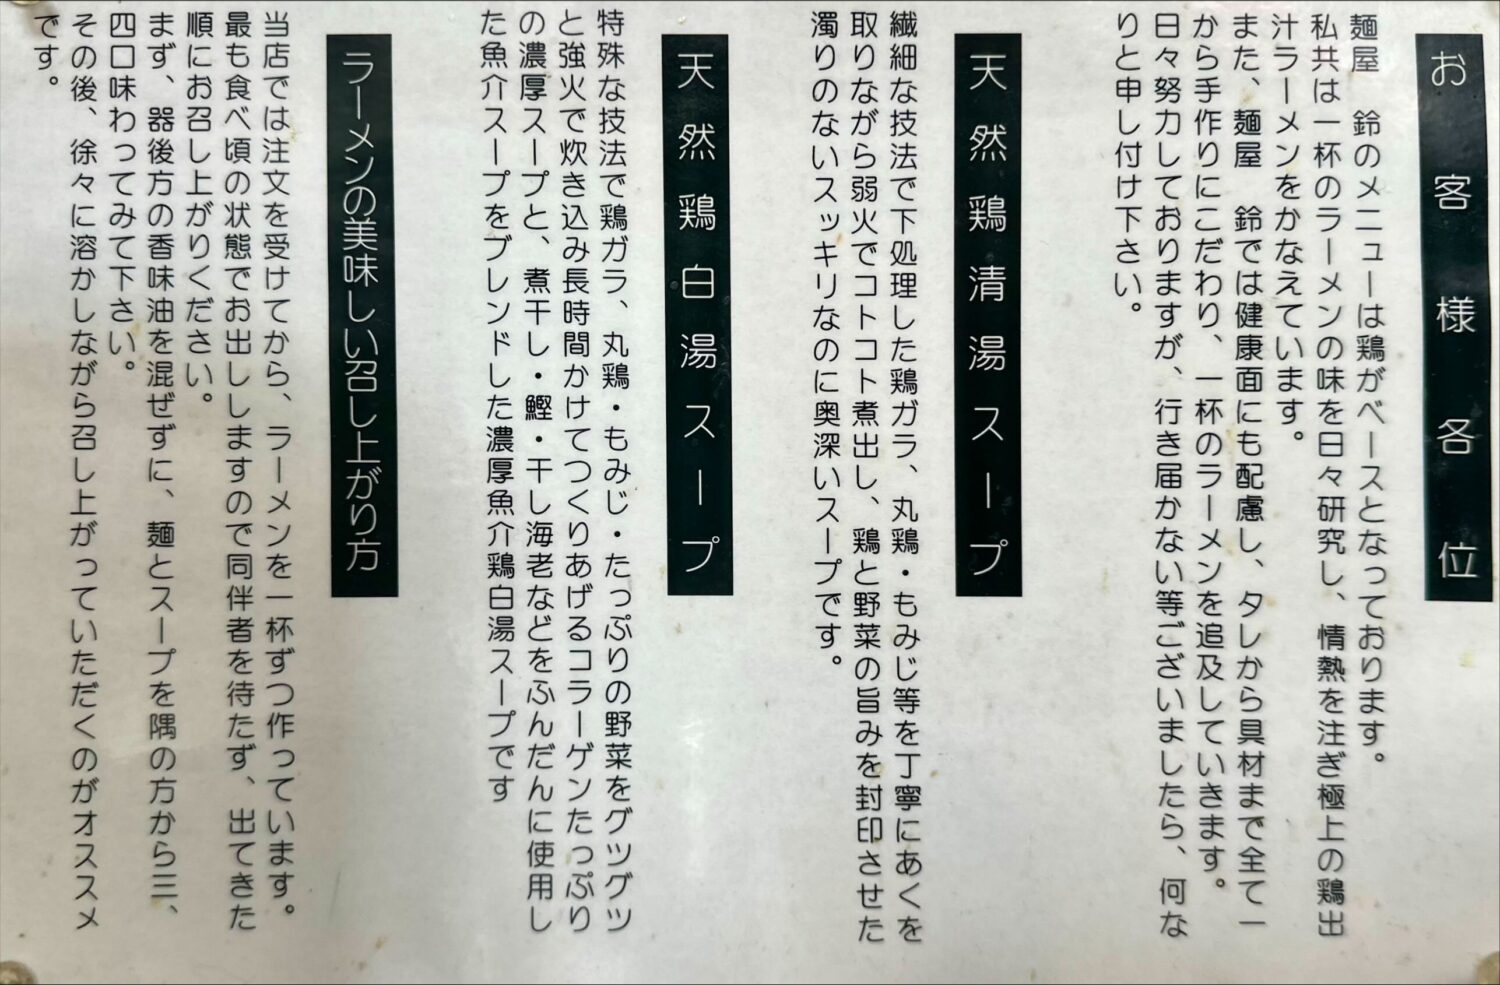 お客様各位
麺屋　鈴のメニューは鶏がベースとなっております。
私共は一杯のラーメンの味を日々研究し、情熱を注ぎ極上の鶏出
汁ラーメンをかなえています。
また、麺屋　鈴では健康面にも配慮し、タレから具材まで全て一
から手作りにこだわり、一杯のラーメンを追及していきます。
日々努力しておりますが、行き届かない等ございましたら、何な
りと申し付け下さい。
天然鶏清湯スープ
繊細な技法で下処理した鶏ガラ、丸鶏・もみじ等を丁寧にあくを
取りながら弱火でコトコト煮出し、鶏と野菜の旨みを封印させた
濁りのないスッキリなのに奥深いスープです。
天然鶏白湯スープ
特殊な技法で鶏ガラ、丸鶏・もみじ・たっぷりの野菜をグツグツ
と強火で炊き込み長時間かけてつくりあげるコラーゲンたっぷり
の濃厚スープと、煮干し・鰹・干し海老などをふんだんに使用し
た魚介スープをブレンドした濃厚魚介鶏白湯スープです
ラーメンの美味しい召し上がり方
当店では注文を受けてから、ラーメンを一杯ずつ作っています。
最も食べ頃の状態でお出ししますので同伴者を待たず、出てきた
順にお召し上がりください。
まず、器後方の香味油を混ぜずに、麺とスープを隅の方から三、
四口味わってみて下さい。
その後、徐々に溶かしながら召し上がっていただくのがオススメ
です。